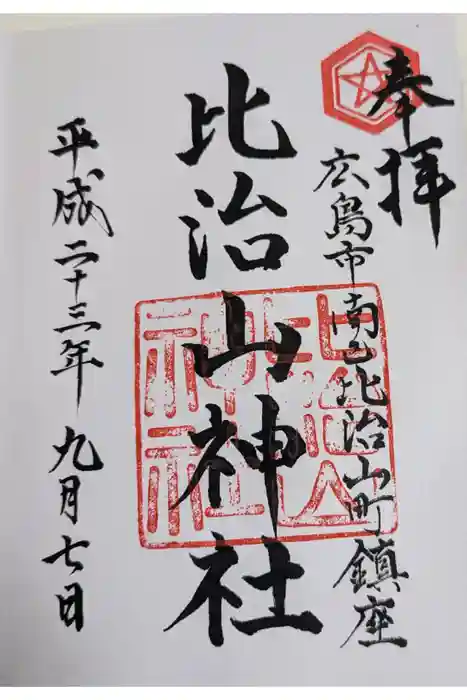 奉拝
広島市南区比治山町鎮座
比治山神社
平成二十三年九月七日
比治山神社